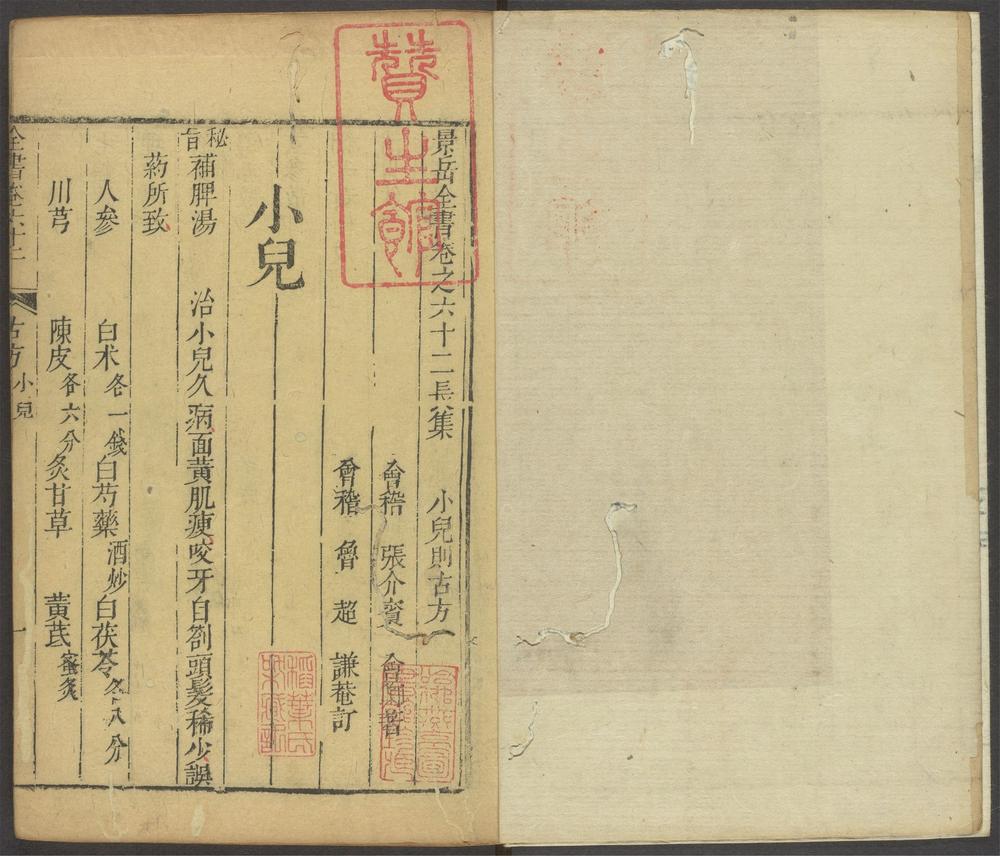 景岳全書卷之六十二長集 小兒則古方
會稽 張介賓 會卿著
會稽 魯超 謙菴訂
小兒
秘旨補脾湯 治小兒久病面黃肌瘦咬牙目劄頭髮稀少誤
药所致
人參 白术各一錢 白芍藥酒炒 白茯苓各八分
川芎 陳皮各六分 炙甘草 黃茋蜜炙
全書卷六十二 古方 小兒 一
贊生館
稻葉氏